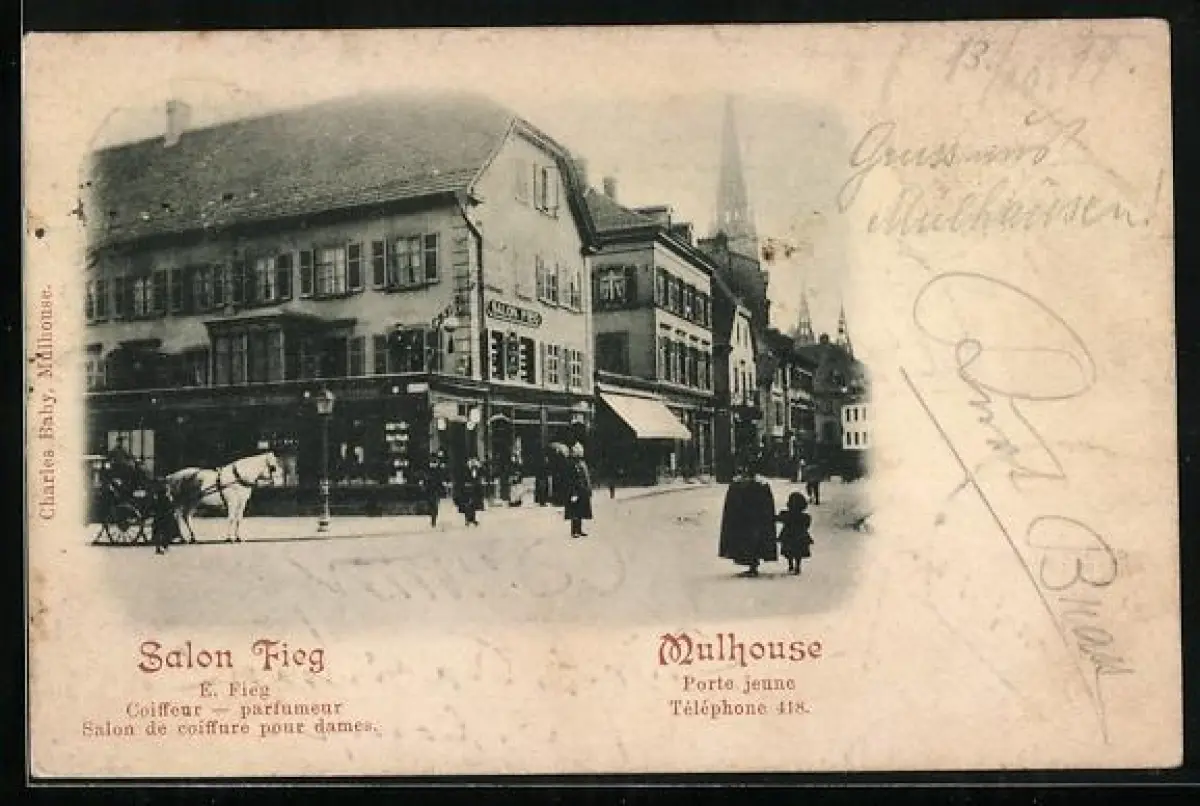 13./10. 99
Gruss aus
Mülhausen!
SALON FIEG
Charles Baby, Mulhouse.
Salon Fieg
E. Fieg
Coiffeur — parfumeur
Salon de coiffure pour dames.
Mulhouse
Porte jeune
Téléphone 418.